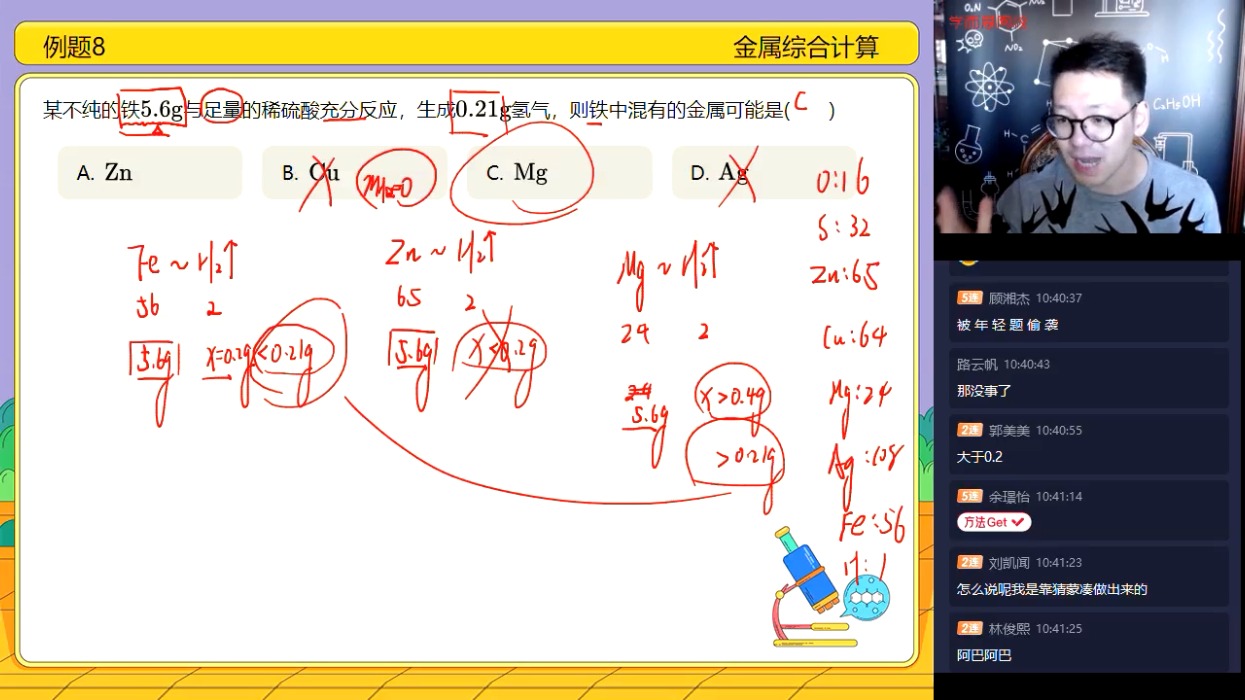 例题8
金属综合计算
某不纯的铁5.6g与足量的稀硫酸充分反应，生成0.21g氢气，则铁中混有的金属可能是( C )
A. Zn
B. Cu
C. Mg
D. Ag
Fe ~ H₂↑
56 2
5.6g x=0.2g <0.21g
Zn ~ H₂↑
65 2
5.6g x<0.2g
Mg ~ H₂↑
24 2
5.6g x>0.4g
>0.21g
O:16
S:32
Zn:65
Cu:64
Mg:24
Ag:108
Fe:56
H:1
O₂N
NO₂
C₂H₅OH
5连 顾湘杰 10:40:37
被年轻题偷袭
路云帆 10:40:43
那没事了
2连 郭美美 10:40:55
大于0.2
5连 余璟怡 10:41:14
方法Get
2连 刘凯闻 10:41:23
怎么说呢我是靠猜蒙凑做出来的
2连 林俊熙 10:41:25
阿巴阿巴